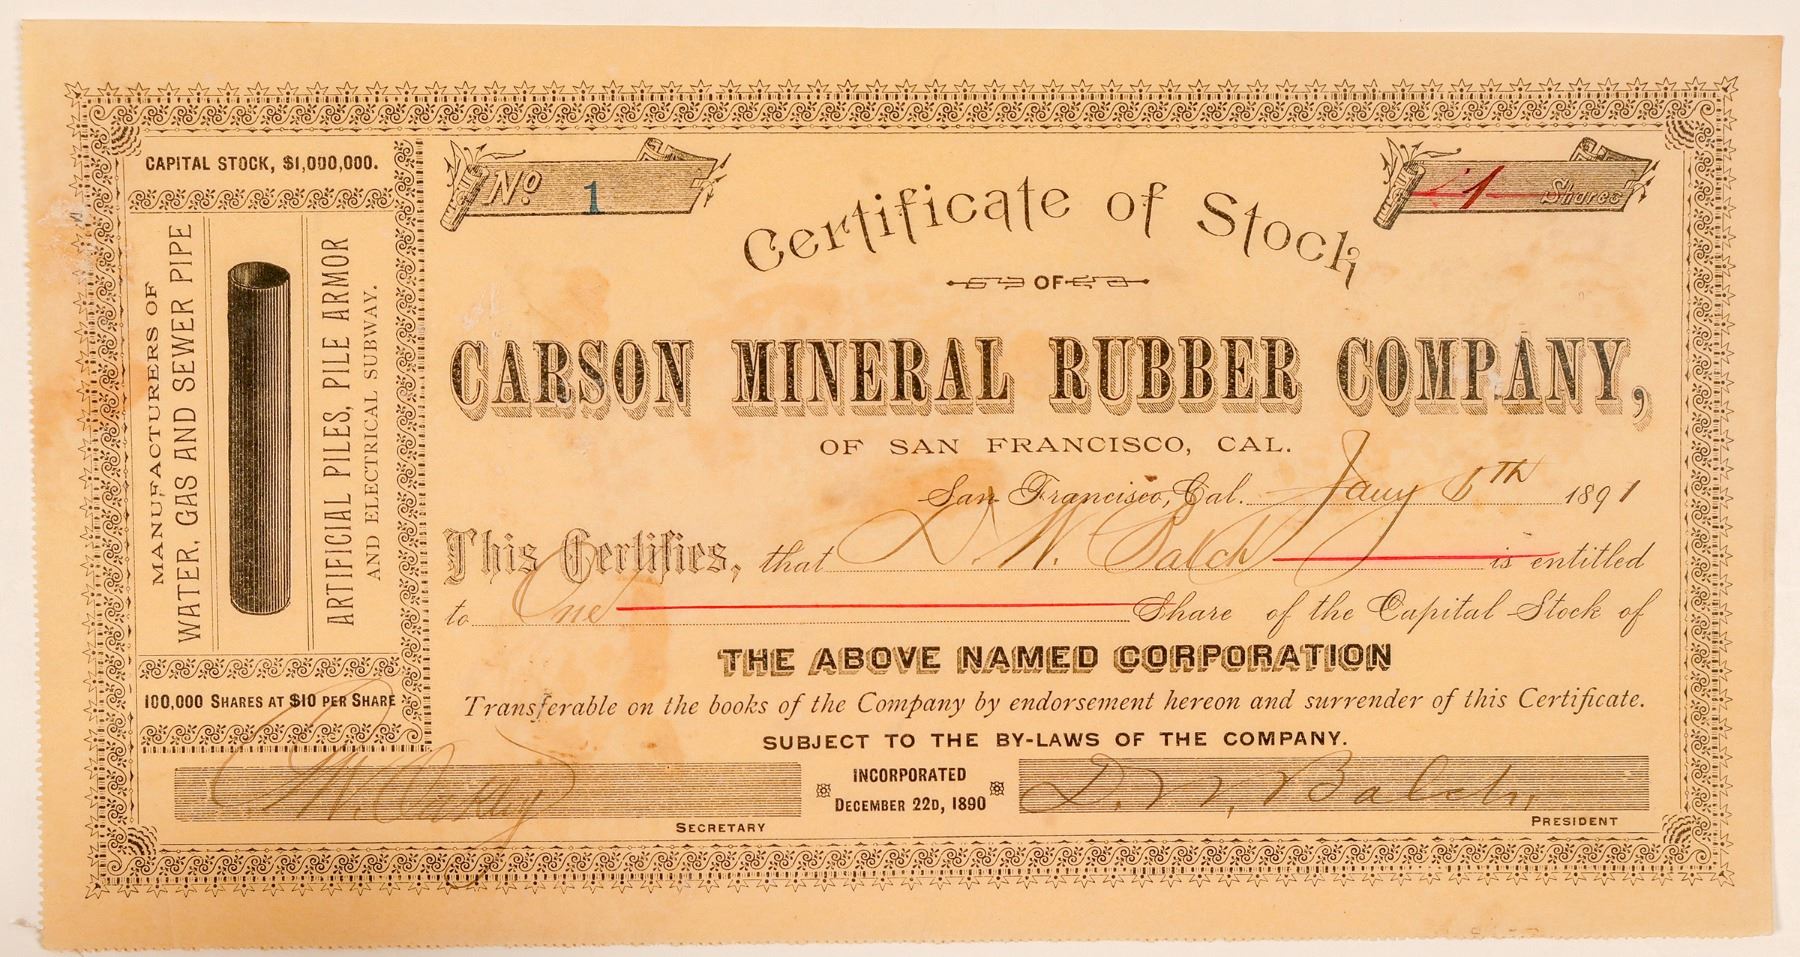 CAPITAL STOCK, $1,000,000.
MANUFACTURERS OF
WATER, GAS AND SEWER PIPE
ARTIFICIAL PILES, PILE ARMOR
AND ELECTRICAL SUBWAY.
100,000 SHARES AT $10 PER SHARE
No 1
1 Shares
Certificate of Stock
OF
CARSON MINERAL RUBBER COMPANY,
OF SAN FRANCISCO, CAL.
San Francisco, Cal. Jany 6TH 1891
This Certifies, that D. N. Balch is entitled
to One Share of the Capital Stock of
THE ABOVE NAMED CORPORATION
Transferable on the books of the Company by endorsement hereon and surrender of this Certificate.
SUBJECT TO THE BY-LAWS OF THE COMPANY.
Oakley
SECRETARY
INCORPORATED
DECEMBER 22D, 1890
D. N. Balch,
PRESIDENT